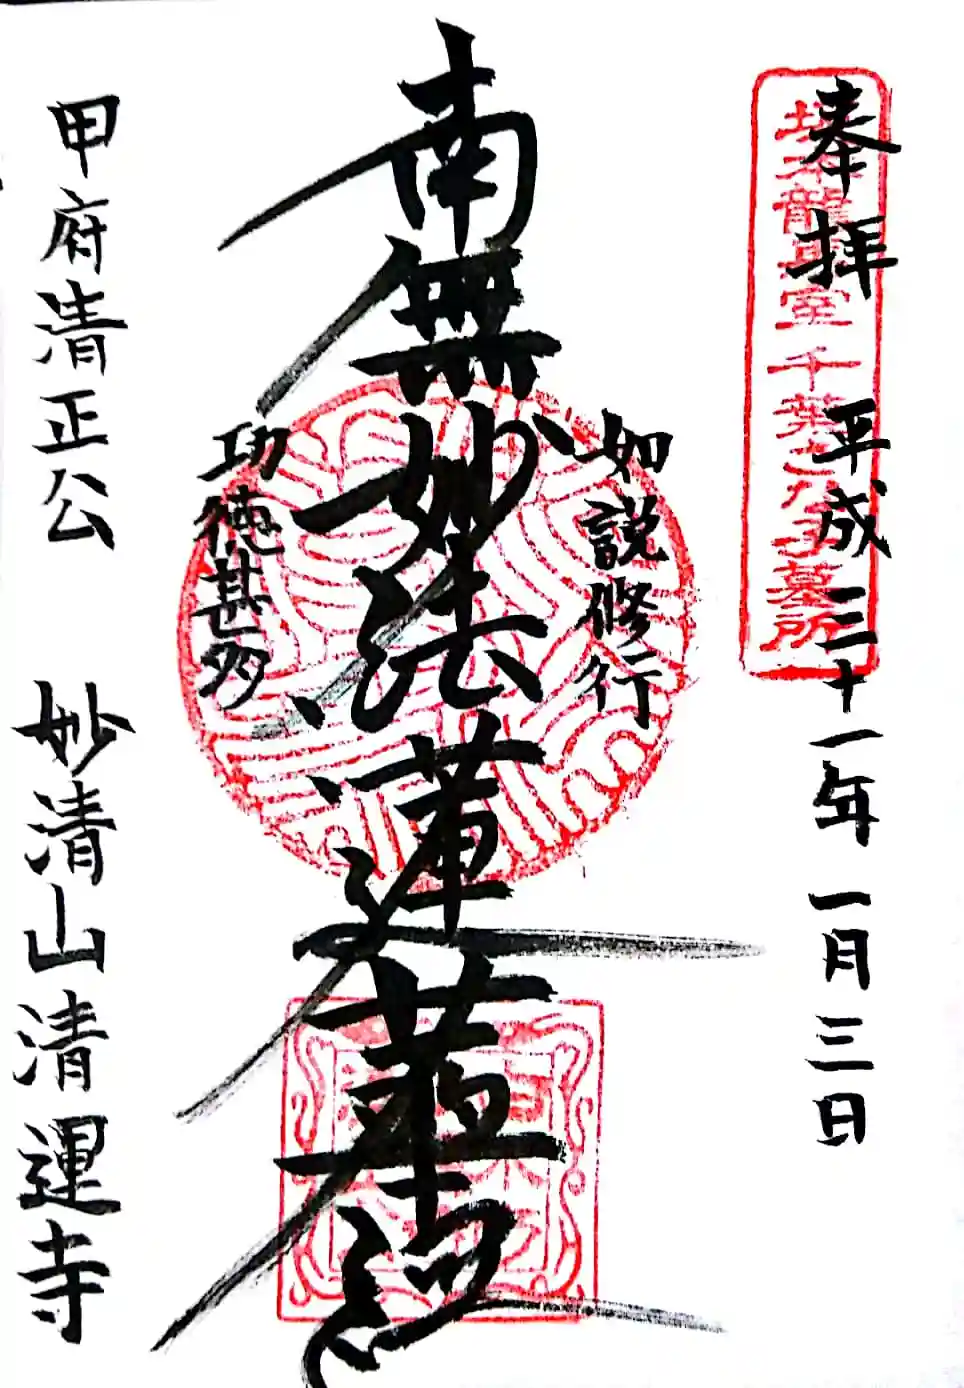 奉拝 平成三十一年一月三日
坂本龍馬室 千葉さな子墓所
如説修行
南無妙法蓮華経
功徳甚多
甲府清正公 妙清山清運寺